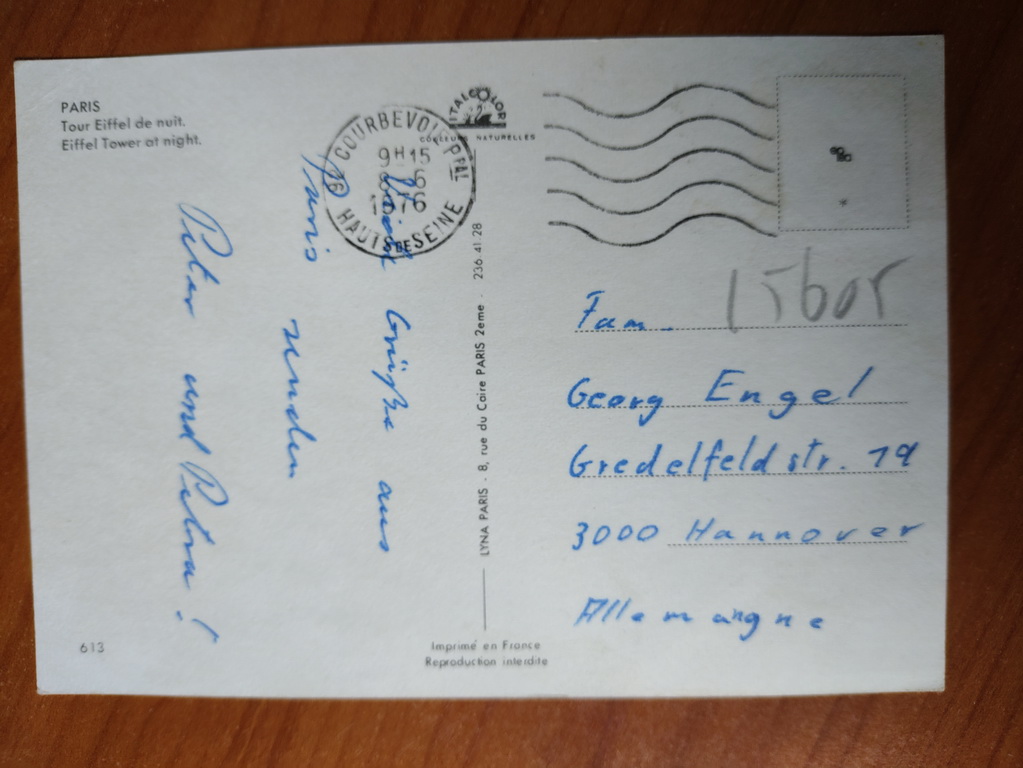 PARIS
Tour Eiffel de nuit.
Eiffel Tower at night.
ITALCOLOR
COULEURS NATURELLES
COURBEVOIE PPAL
9H15
6
1976
HAUTS DE SEINE
Grüße aus
Paris
senden
Peter und Petra!
LYNA PARIS - 8, rue du Caire PARIS 2eme - 236.41.28
Fam.
Georg Engel
Gredelfeldstr. 19
3000 Hannover
Allemangne
613
Imprimé en France
Reproduction interdite